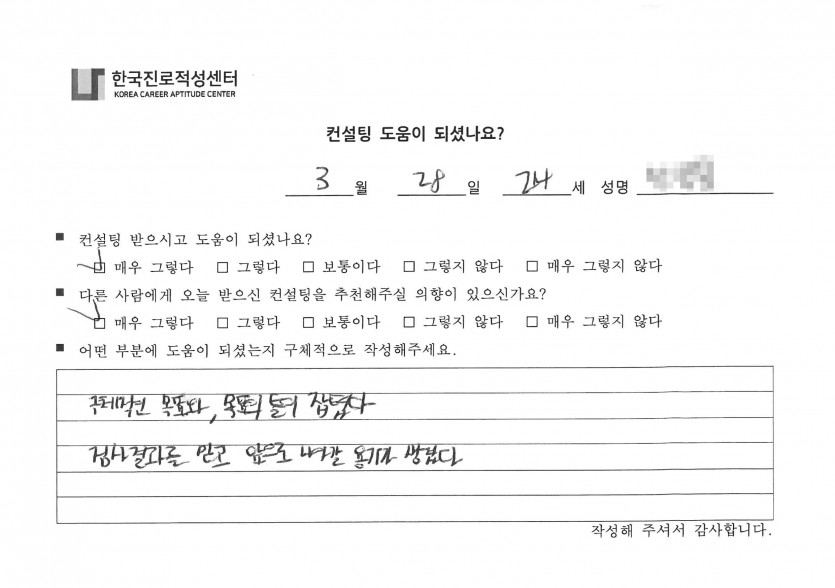 한국진로적성센터
KOREA CAREER APTITUDE CENTER
컨설팅 도움이 되셨나요?
3 월 28 일 24 세 성명
■ 컨설팅 받으시고 도움이 되셨나요?
□ 매우 그렇다 □ 그렇다 □ 보통이다 □ 그렇지 않다 □ 매우 그렇지 않다
■ 다른 사람에게 오늘 받으신 컨설팅을 추천해주실 의향이 있으신가요?
□ 매우 그렇다 □ 그렇다 □ 보통이다 □ 그렇지 않다 □ 매우 그렇지 않다
■ 어떤 부분에 도움이 되셨는지 구체적으로 작성해주세요.
구체적인 목표와, 목표의 틀이 잡혔다
검사결과를 믿고 앞으로 나아갈 용기가 생겼다
작성해 주셔서 감사합니다.